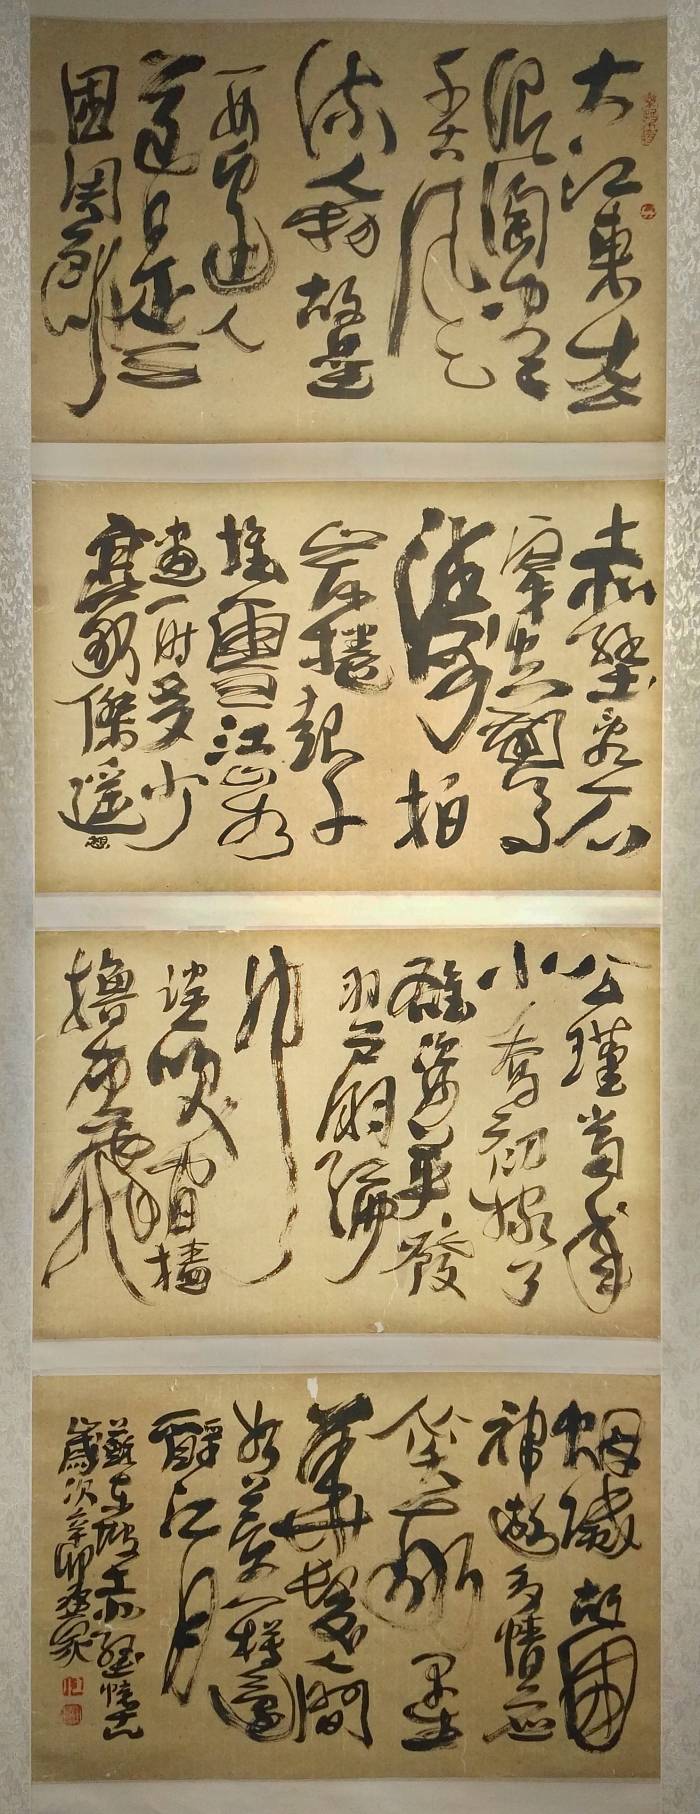 大江東去
浪淘盡
千古風
流人物故壘
西邊人
道是三
國周郎
赤壁亂石
穿空驚
濤拍
岸捲起千
堆雪江山如
畫一時多少
豪傑遙想
公瑾當年
小喬初嫁了
雄姿英發
羽扇綸
巾
談笑間檣
櫓灰飛
煙滅故國
神遊多情應
笑我早生
華髮人間
如夢一樽還
酹江月
蘇東坡赤壁懷古
歲次辛卯